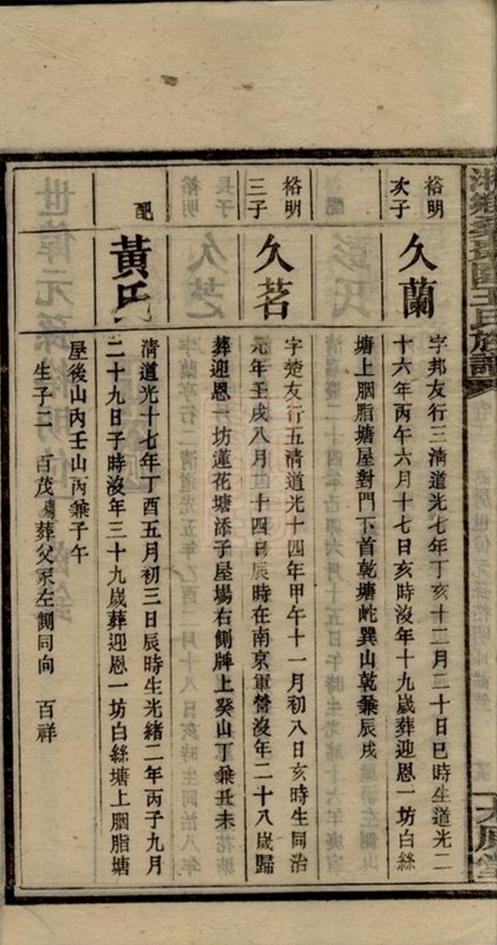 裕明
次子
久蘭
字邦友行三清道光七年丁亥十二月二十日巳時生道光二
十六年丙午六月十七日亥時沒年十九歲葬迎恩一坊白絲
塘上胭脂塘屋對門下首乾塘岮巽山乾兼辰戌
裕明
三子
久茗
字楚友行五清道光十四年甲午十一月初八日亥時生同治
元年壬戌八月二十四日辰時在南京軍營沒年二十八歲歸
葬迎恩一坊蓮花塘添子屋場右側牌上癸山丁兼丑未
配
黃氏
清道光十七年丁酉五月初三日辰時生光緒二年丙子九月
二十九日子時沒年三十九歲葬迎恩一坊白絲塘上胭脂塘
屋後山內壬山丙兼子午
生子二 百茂殤葬父冢左側同向 百祥